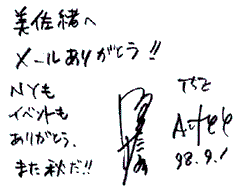 美佐緒へ
メールありがとう!!
NYも
イベントも
ありがとう.
また秋だ!!
98.9.1